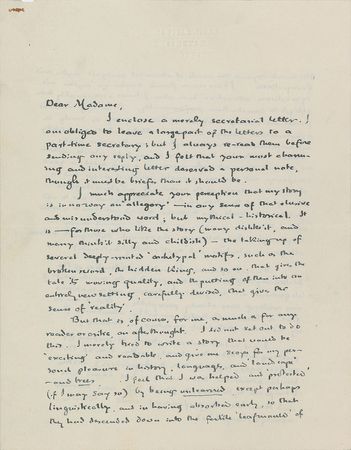 Dear Madame,
I enclose a merely secretarial letter. I
am obliged to leave a large part of the letters to a
part-time secretary; but I always re-read them before
sending any reply, and I felt that your most charm-
ing and interesting letter deserved a personal note,
though it must be briefer than it should be.
I much appreciate your perception that my story
is in no way an 'allegory' – in any sense of that elusive
and misunderstood word; but mythical-historical. It
is – for those who like the story (many dislike it, and
many think it silly and childish) – the taking up of
several deep-rooted 'archetypal' motifs, such as the
broken sword, the hidden king, and so on, that give the
tale its moving quality, and the putting of them into an
entirely new setting, carefully devised, that gives the
sense of 'reality'.
But that is of course, for me, as much as for any
reader or critic, an afterthought. I did not set out to do
this. I merely tried to write a story that would be
'exciting' and readable, and give me scope for my per-
sonal pleasure in history, languages, and 'landscape'
– and trees. I feel that I was helped and protected,
(if I may say so) by being unlearned except perhaps
linguistically, and in having absorbed early, so that
they had descended down into the fertile 'leafmould' of